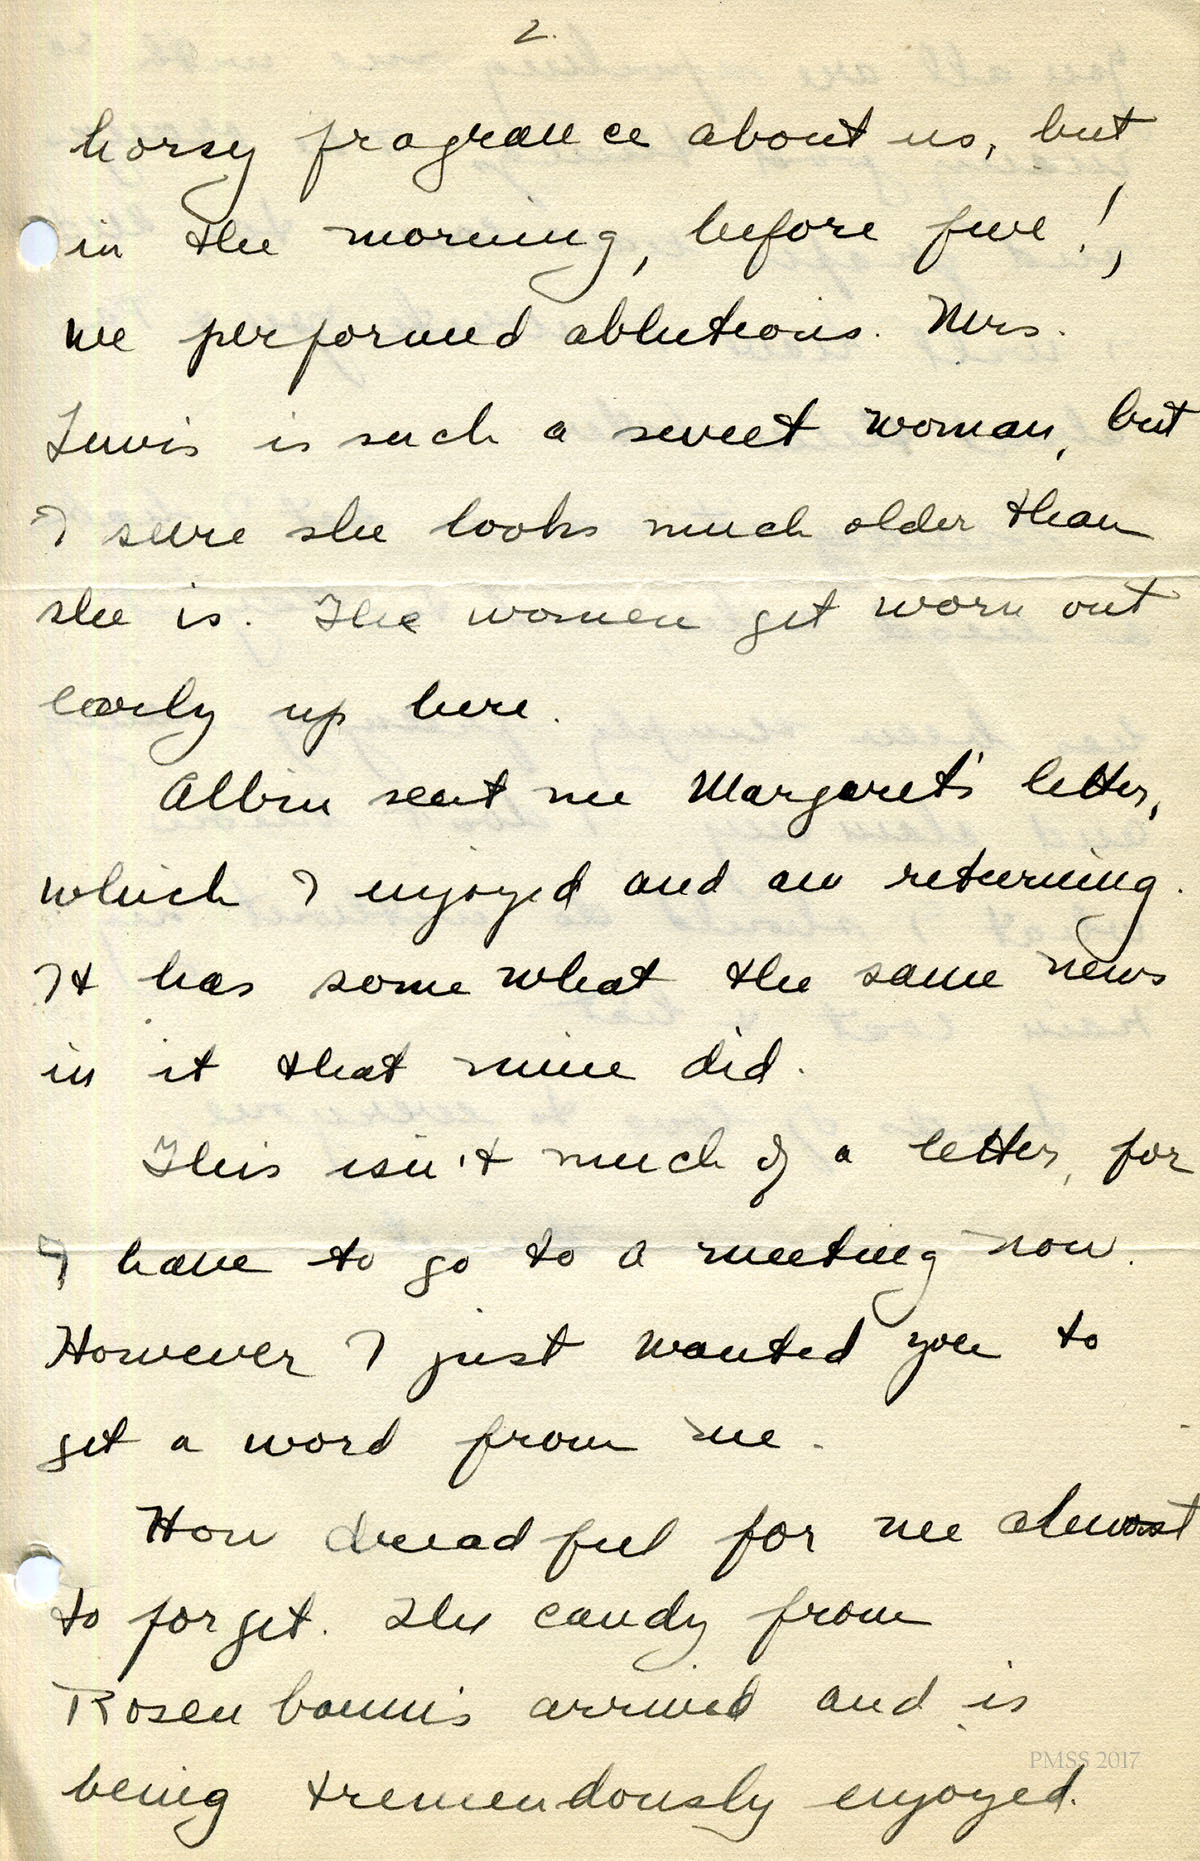 2.
horsy fragrance about us, but
in the morning, before five!,
we performed ablutions. Mrs.
Lewis is such a sweet woman, but
I sure she looks much older than
she is. The women get worn out
early up here.
Albin sent me Margaret's letter,
which I enjoyed and am returning.
It has some what the same news
in it that mine did.
This isn't much of a letter, for
I have to go to a meeting now.
However I just wanted you to
get a word from me.
How dreadful for me almost
to forget. The candy from
Rosenbaum's arrived and is
being tremendously enjoyed.
PMSS 2017